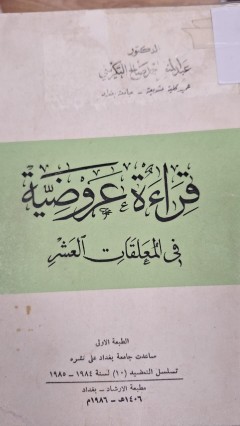 الدكتور
قراءة عروضية
في المعلقات العشر
الطبعة الاولى
ساعدت جامعة بغداد على نشره
تسلسل التعضيد (١٠) لسنة ١٩٨٤ - ١٩٨٥
مطبعة الارشاد - بغداد
١٤٠٦هـ - ١٩٨٦م